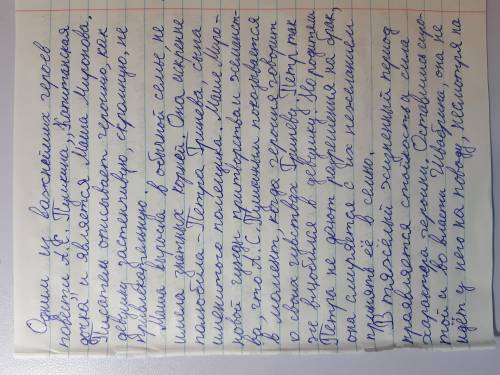 Одним из важнейших героев
повести А.С. Пушкина „Капитанская
дочка и является Маша Миронова.
Писатель описывает героиню, как
девушку застенчивую, скромную, не
приукрашенную.
Маша выросла в обычной семье, не
имела знатных корней. Она искренне
полюбила - Петра Гринёва, сына
именитого помещика. Маше Миро-
новой чуждо притворство и жеманст-
во, что А.С. Пушкиным показывается
в момент, когда героиня говорит
о своих чувствах Гринёву. Пётр так
же влюбился в девушку. Но родители
Петра не дают разрешения на брак,
она смиряется с их нежеланием
принять её в семью.
В тяжёлый жизненный период
проявляется стойкость и сила
характера героини. Оставшись сиро-
той и во власти Швабрина, она не
идёт у него на поводу, несмотря на